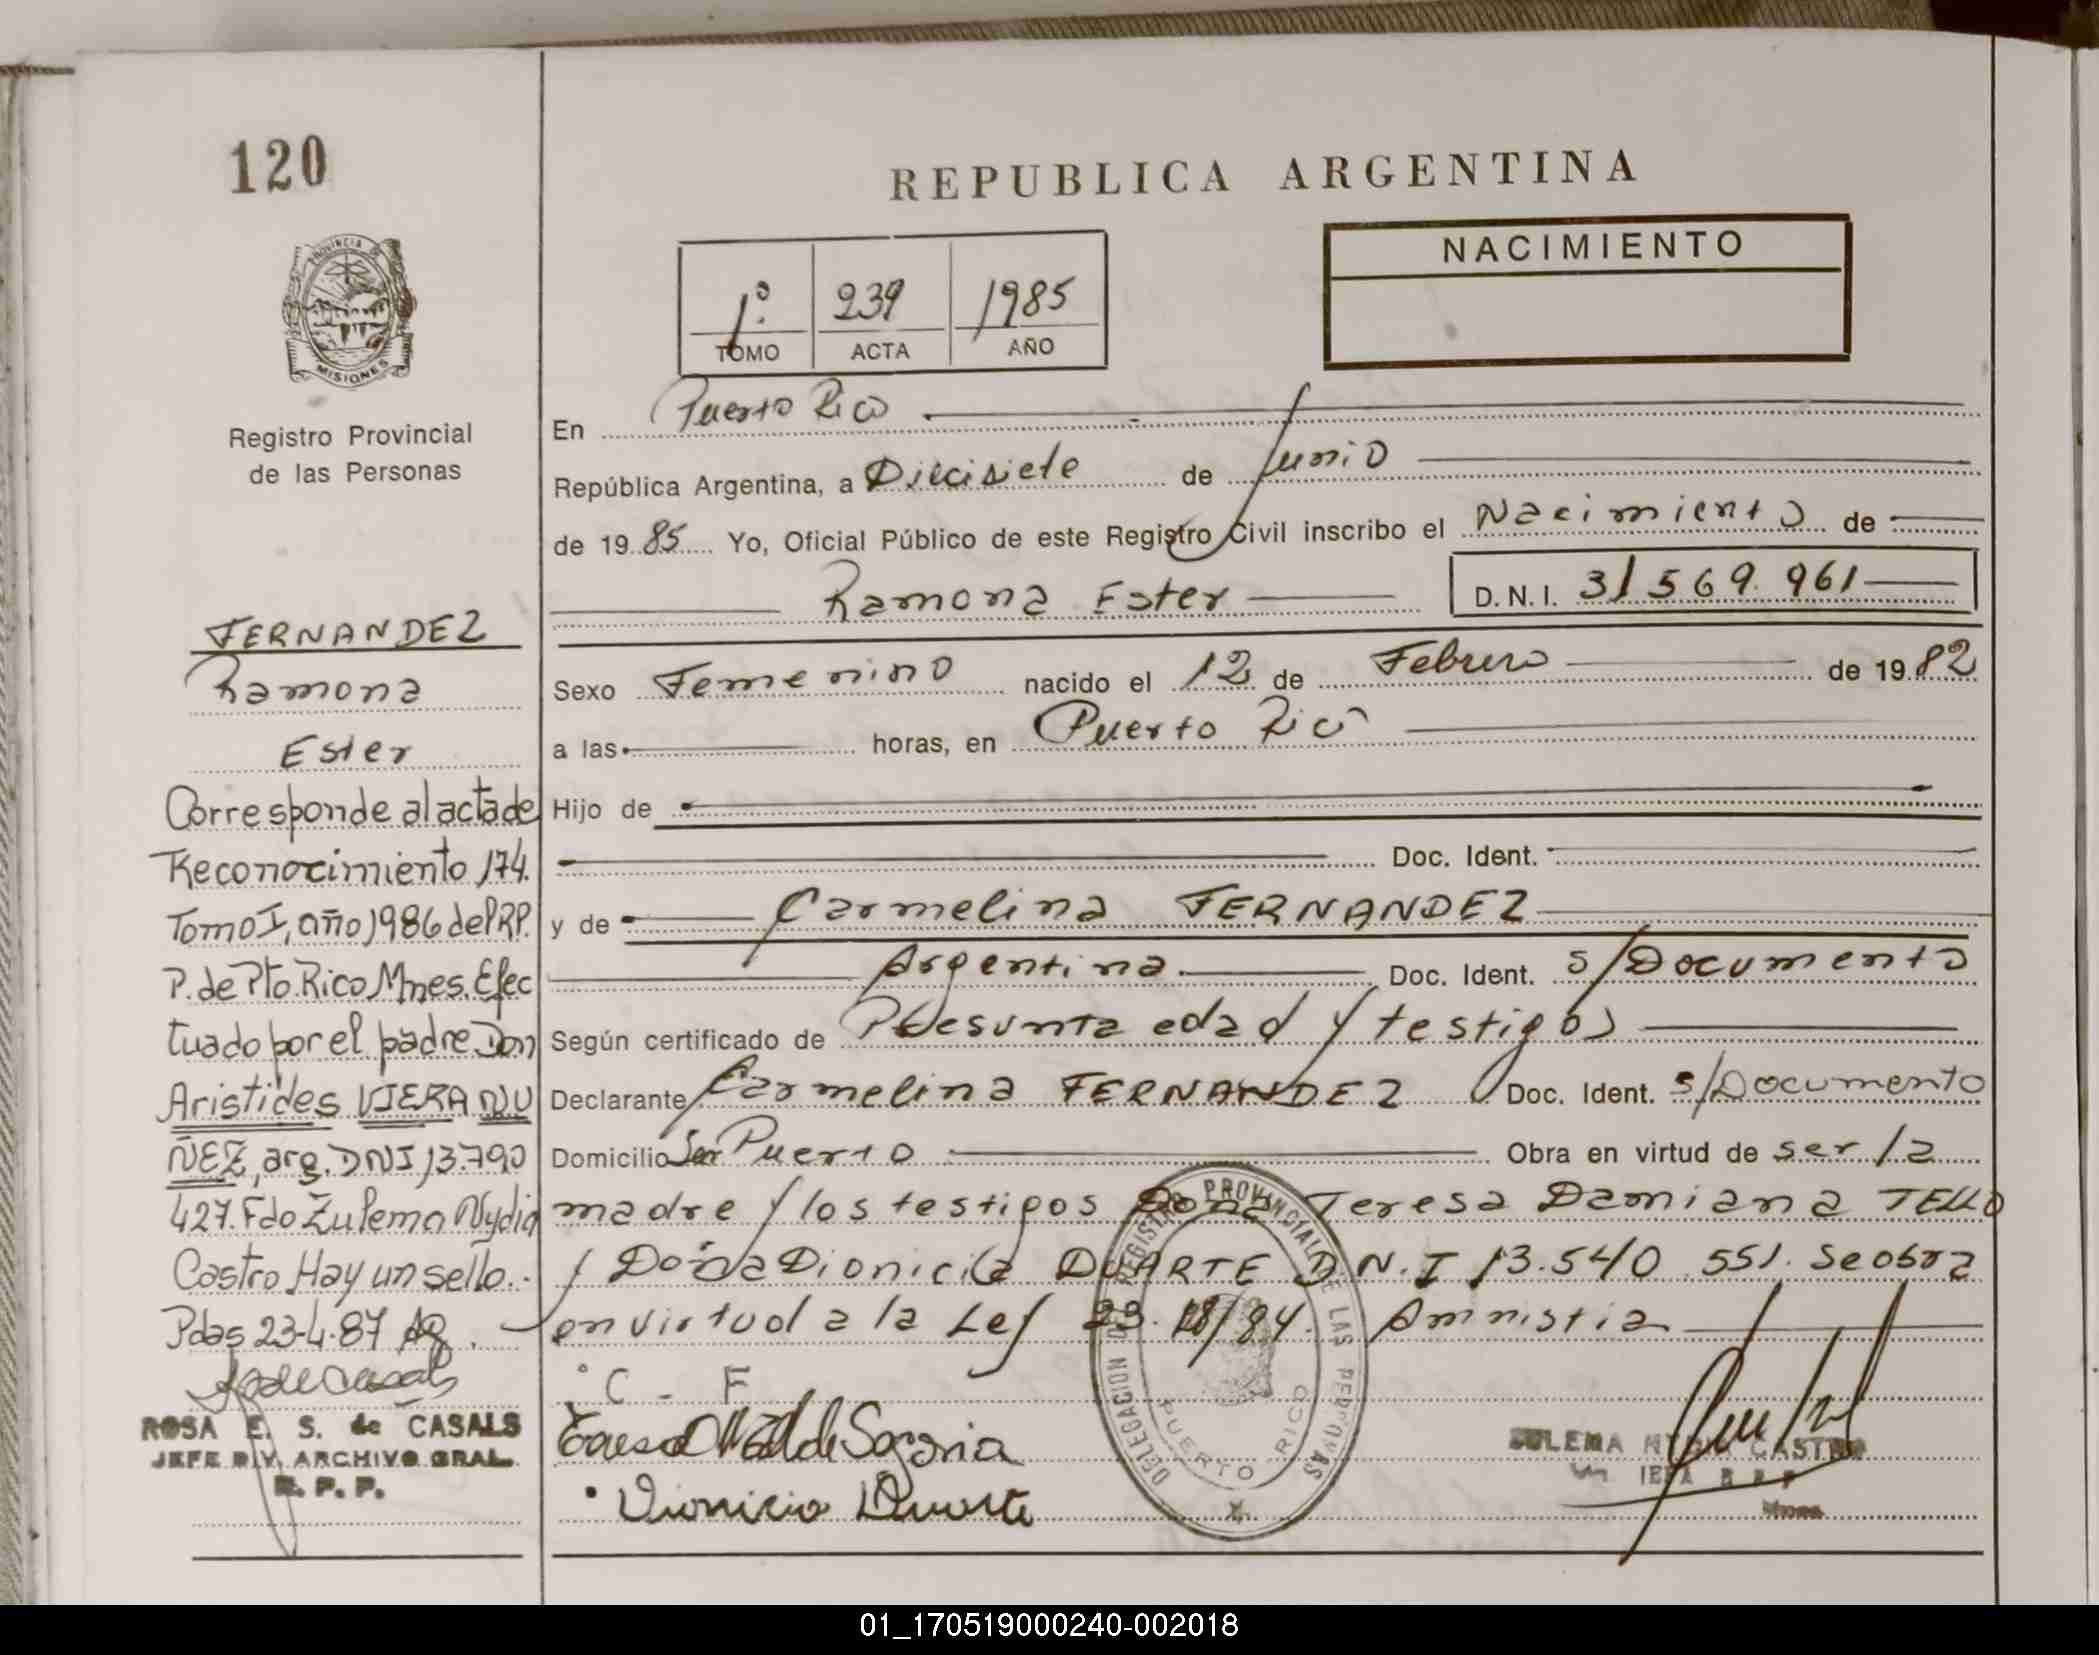 120
REPUBLICA ARGENTINA
PROVINCIA DE
MISIONES
Registro Provincial
de las Personas
1º 239 1985
TOMO ACTA AÑO
NACIMIENTO
En Puerto Rico
República Argentina, a Diecisiete de Junio
de 1985 Yo, Oficial Público de este Registro Civil inscribo el Nacimiento de
Ramona Ester D.N.I. 31 569 961
Sexo Femenino nacido el 12 de Febrero de 1982
a las horas, en Puerto Rico
Hijo de
Doc. Ident.
y de Carmelina FERNANDEZ
Argentina Doc. Ident. s/Documento
Según certificado de Presunta edad y testigos
Declarante Carmelina FERNANDEZ Doc. Ident. s/Documento
Domicilio Puerto Obra en virtud de ser la
madre y los testigos Doña Teresa Damiana TELLO
y Doña Dionicia DUARTE D.N.I 13.540 551. Se obra
en virtud a la Ley 23. /84. Amnistia
C - F
Dionicia Duarte
DELEGACION DEL REGISTRO PROVINCIAL DE LAS PERSONAS
PUERTO RICO
ZULEMA NYDIA CASTRO
JEFA R P P
FERNANDEZ
Ramona
Ester
Corresponde al acta de
Reconocimiento 174.
Tomo I, año 1986 del R.P.
P. de Pto. Rico Mnes. Efec
tuado por el padre Don
Aristides VIERA NU
ÑEZ, arg. DNI 13.790
427. Fdo Zulema Nydia
Castro Hay un sello.-
Pdas 23-4-87
ROSA E. S. de CASALS
JEFE DIV. ARCHIVO GRAL.
R. P. P.
01_170519000240-002018